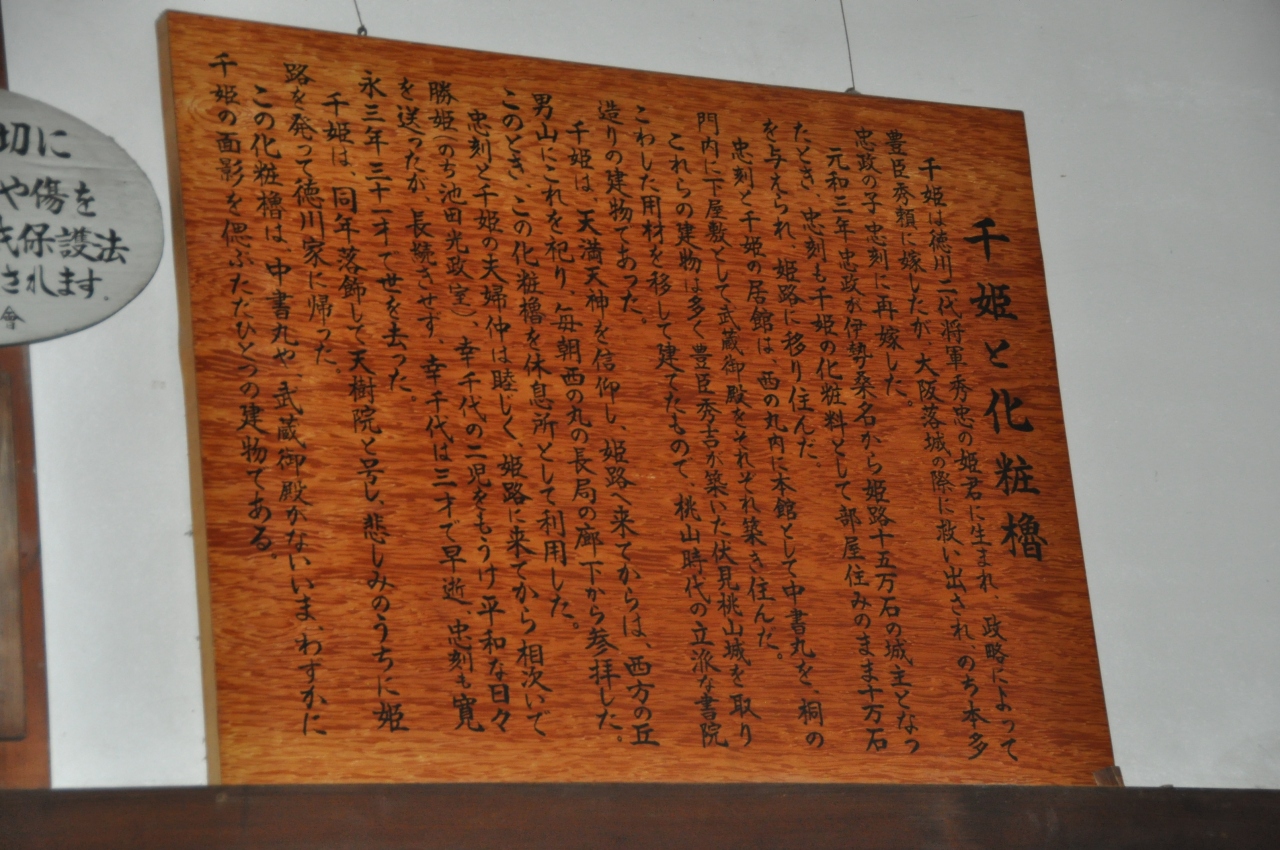 千姫と化粧櫓
千姫は徳川二代将軍秀忠の姫君に生まれ、政略によって
豊臣秀頼に嫁したが、大阪落城の際に救い出され、のち本多
忠政の子忠刻に再嫁した。
元和三年忠政が伊勢桑名から姫路十五万石の城主となっ
たとき、忠刻も千姫の化粧料として部屋住みのまま十万石
を与えられ、姫路に移り住んだ。
忠刻と千姫の居館は、西の丸内に本館として中書丸を、桐の
門内に下屋敷として武蔵御殿をそれぞれ築き住んだ。
これらの建物は多く豊臣秀吉が築いた伏見桃山城を取り
こわした用材を移して建てたもので、桃山時代の立派な書院
造りの建物であった。
千姫は、天満天神を信仰し、姫路へ来てからは、西方の丘
男山にこれを祀り、毎朝西の丸の長局の廊下から参拝した。
このとき、この化粧櫓を休息所として利用した。
忠刻と千姫の夫婦仲は睦しく、姫路に来てから相次いで
勝姫(のち池田光政室)、幸千代の二児をもうけ平和な日々
を送ったが、長続きせず、幸千代は三才で早逝、忠刻も寛
永三年三十一才で世を去った。
千姫は、同年落飾して天樹院と号し、悲しみのうちに姫
路を発って徳川家に帰った。
この化粧櫓は、中書丸や武蔵御殿がないいま、わずかに
千姫の面影を偲ぶただひとつの建物である。
切に
や傷を
保護法
されます。
會